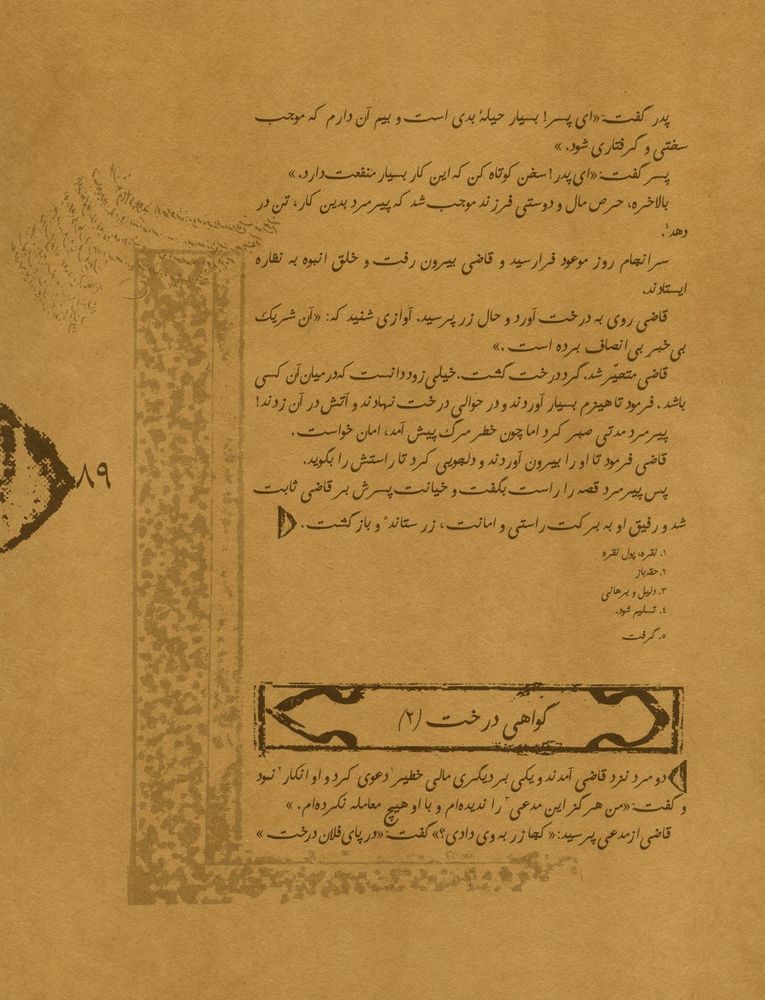 پدر گفت: «ای پسر! بسیار حیلهٔ بدی است و بیم آن دارم که موجب
سختی و گرفتاری شود.»
پسر گفت: «ای پدر! سخن کوتاه کن که این کار بسیار منفعت دارد.»
بالاخره، حرص مال و دوستی فرزند موجب شد که پیرمرد بدین کار، تن در
دهد۴.
سرانجام روز موعود فرا رسید و قاضی بیرون رفت و خلق انبوه به نظاره
ایستادند.
قاضی روی به درخت آورد و حال زر پرسید. آوازی شنید که: «آن شریک
بی‌خبر بی‌انصاف برده است.»
قاضی متحیّر شد. گرد درخت گشت. خیلی زود دانست که در میان آن کسی
باشد. فرمود تا هیزم بسیار آوردند و در حوالی درخت نهادند و آتش در آن زدند!
پیرمرد مدتی صبر کرد اما چون خطر مرگ پیش آمد، امان خواست.
قاضی فرمود تا او را بیرون آوردند و دلجویی کرد تا راستش را بگوید.
پس پیرمرد قصه را راست بگفت و خیانت پسرش بر قاضی ثابت
شد و رفیق او به برکت راستی و امانت، زر ستاند۵ و باز گشت.
۱. نقره، پول نقره
۲. حقه‌باز
۳. دلیل و برهانی
۴. تسلیم شود.
۵. گرفت
۸۹
گواهی درخت (۲)
دو مرد نزد قاضی آمدند و یکی بر دیگری مالی خطیر۱ دعوی کرد و او انکار۲ نمود
و گفت: «من هرگز این مدعی۳ را ندیده‌ام و با او هیچ معامله نکرده‌ام.»
قاضی از مدعی پرسید: «کجا زر به وی دادی؟» گفت: «در پای فلان درخت»